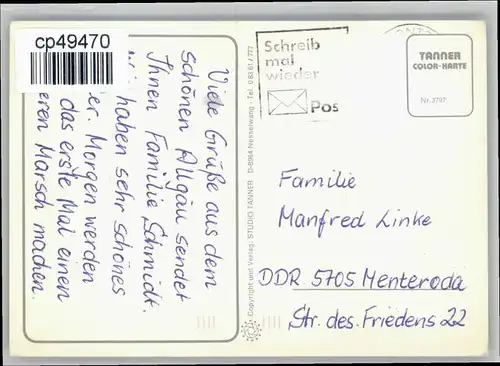 cp49470
Viele Grüße aus dem
schönen Allgäu sendet
Ihnen Familie Schmidt.
haben sehr schönes
Morgen werden
das erste Mal einen
Marsch machen.
© Copyright und Verlag: STUDIO TANNER · D-8964 Nesselwang · Tel. 0 83 61 / 777
Schreib
mal
wieder
Pos
TANNER
COLOR-KARTE
Nr. 2797
Familie
Manfred Linke
DDR 5705 Menteroda
Str. des Friedens 22